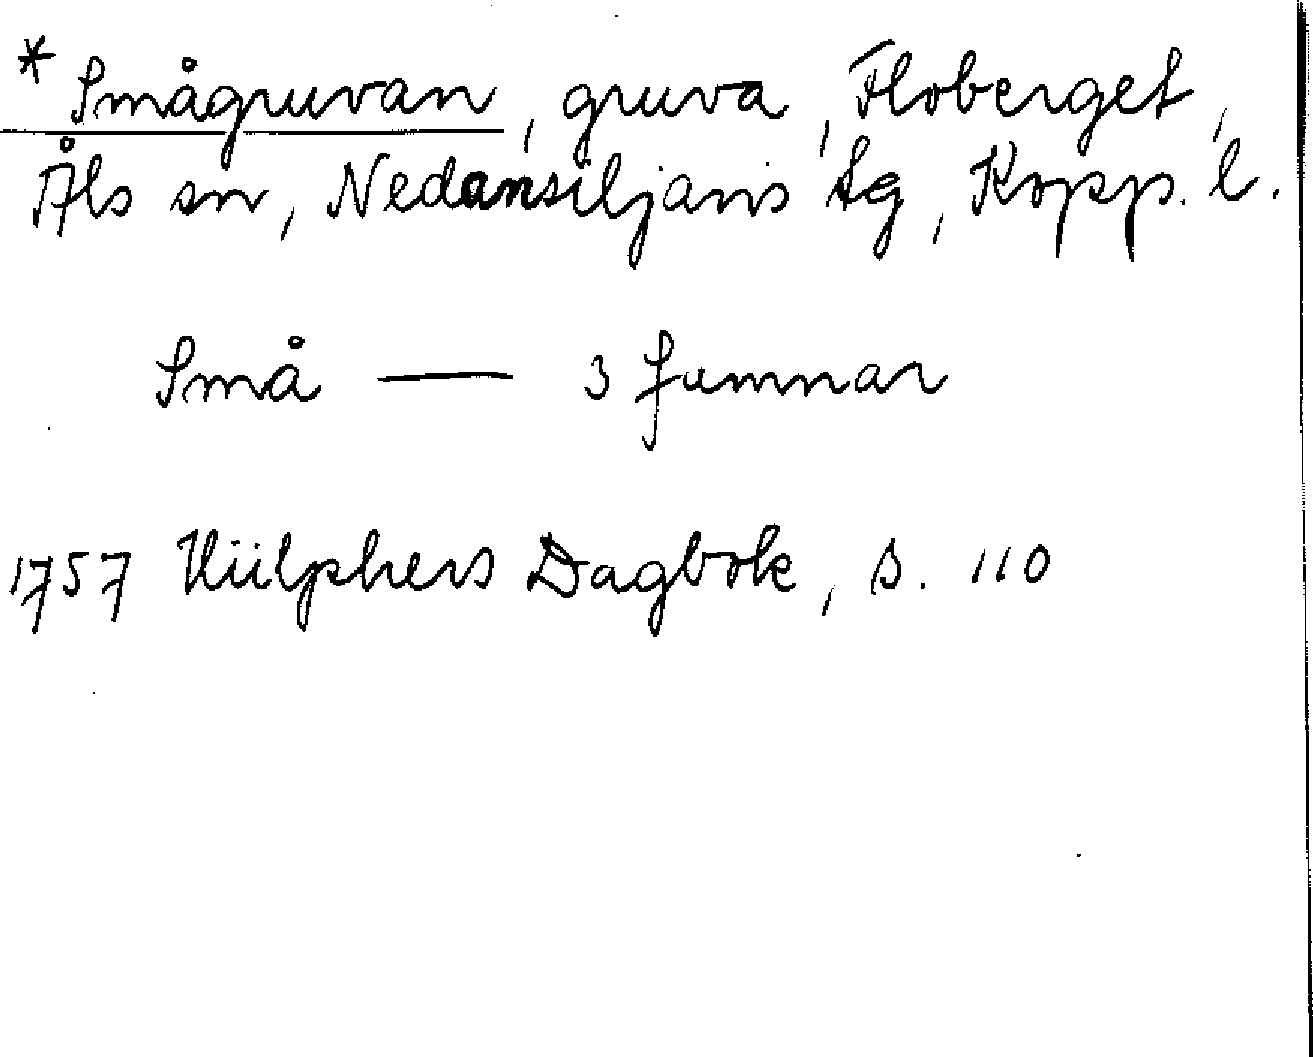 * Smågruvan, gruva, Floberget,
Åls sn, Nedansiljans tg, Kopp. l.
Små — 3 famnar
1757 Hülphers Dagbok, s. 110